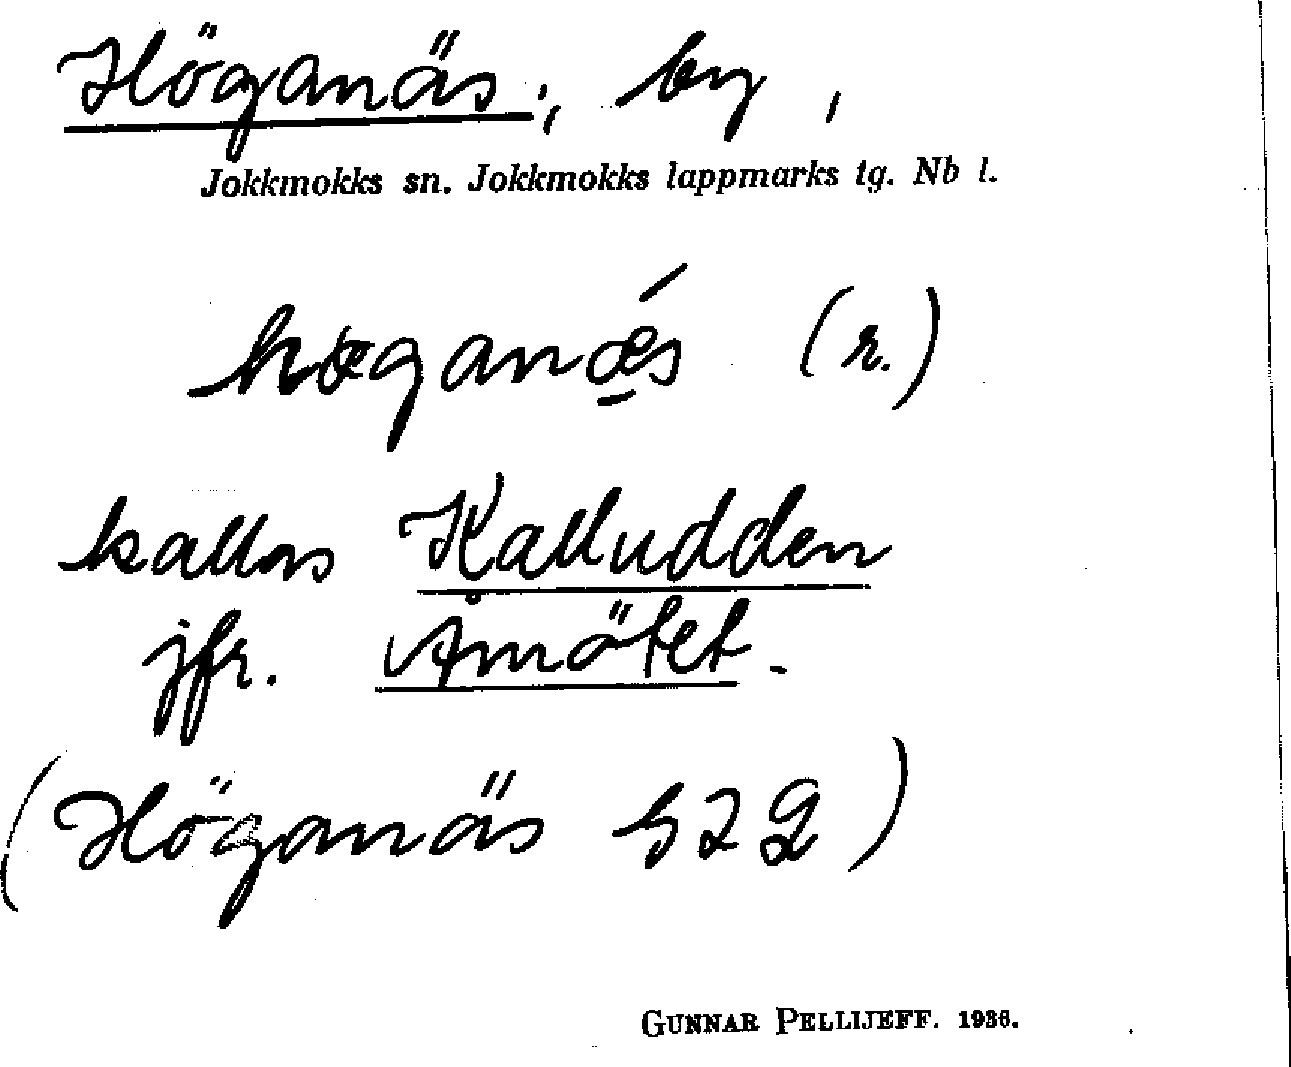 Höganäs; by,
Jokkmokks sn. Jokkmokks lappmarks tg. Nb l.
høganǽs (r.)
kallas Kalludden
jfr. Åmötet.
(Höganäs 52 G)
GUNNAR PELLIJEFF. 1936.